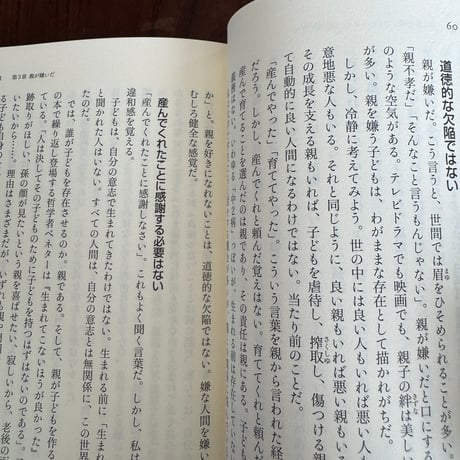 60
道徳的な欠陥ではない
親が嫌いだ。こう言うと、世間では眉をひそめられることが多い。
「親不孝だ」「そんなこと言うもんじゃない」。親が嫌いだと口にする
のような空気がある。テレビドラマでも映画でも、親子の絆は美し
が多い。親を嫌う子どもは、わがままな存在として描かれがちだ。
しかし、冷静に考えてみよう。世の中には良い人もいれば悪い人も
意地悪な人もいる。それと同じように、良い親もいれば悪い親もい
その成長を支える親もいれば、子どもを虐待し、搾取し、傷つける親
て自動的に良い人間になるわけではない。当たり前のことだ。
「産んでやった」「育ててやった」。こういう言葉を親から言われた経
だろう。しかし、産んでくれと頼んだ覚えはない。育ててくれと頼ん
産んで育てることを選んだのは親であり、その責任は親にある。子ども
第3章 親が嫌いだ
か」と。親を好きになれないことは、道徳的な欠陥ではない。嫌な人間を嫌い
むしろ健全な感覚だ。
産んでくれたことに感謝する必要はない
「産んでくれたことに感謝しなさい」。これもよく聞く言葉だ。しかし、私は
違和感を覚える。
子どもは、自分の意志で生まれてきたわけではない。生まれる前に「生ま
と聞かれた人はいない。すべての人間は、自分の意志とは無関係に、この世界
たのだ。
では、誰が子どもを存在させるのか。親である。そして、親が子どもを作る
の本で繰り返し登場する哲学者ベネターは『生まれてこないほうが良かった』
ている。「人は決してその子どものために子どもを持つはずはないのである」
跡取りがほしい、孫の顔が見たいという親の期待に応えたい、寂しいから、老後の面
いから……。理由はさまざまだが、いずれも親